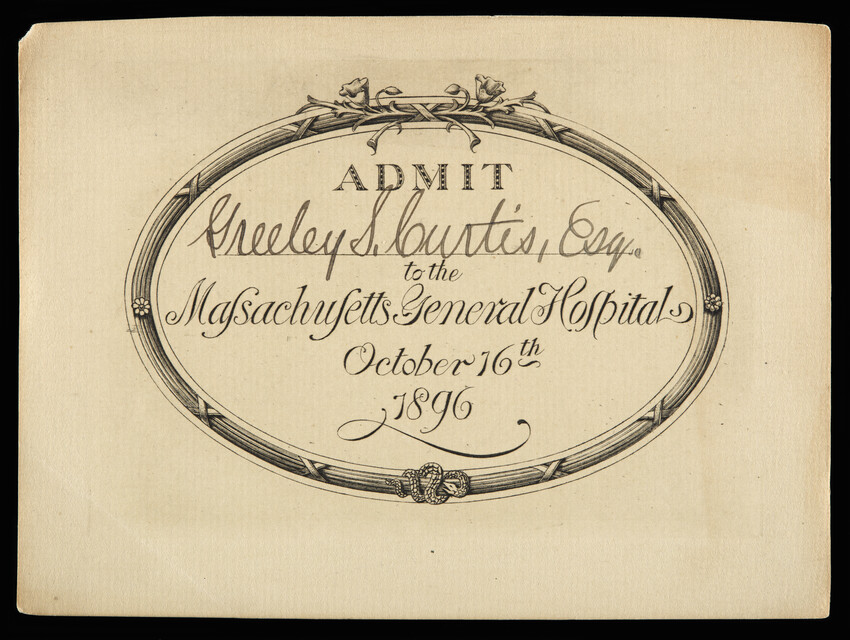 ADMIT
Greeley S. Curtis, Esq.
to the
Maſsachuſetts General Hoſpital
October 16th
1896